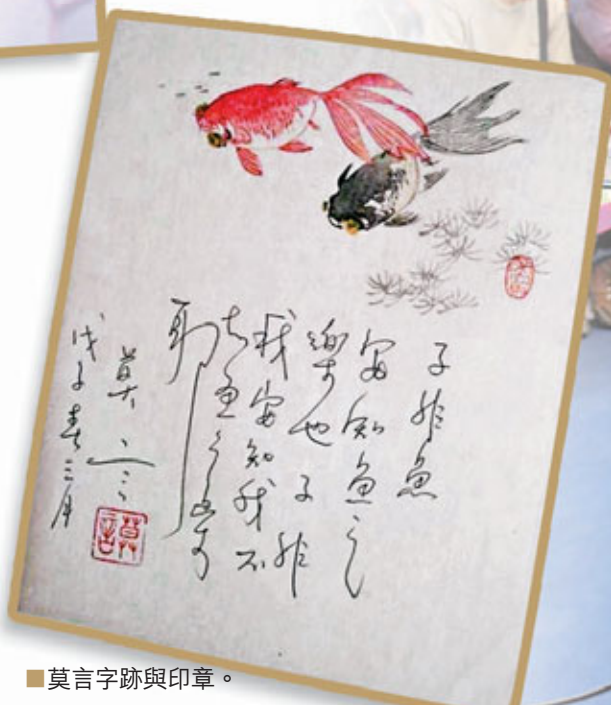 子非魚
安知魚之
樂也子非
我安知我不
知魚之樂
耶
莫言
戊子春三月
莫言
■莫言字跡與印章。